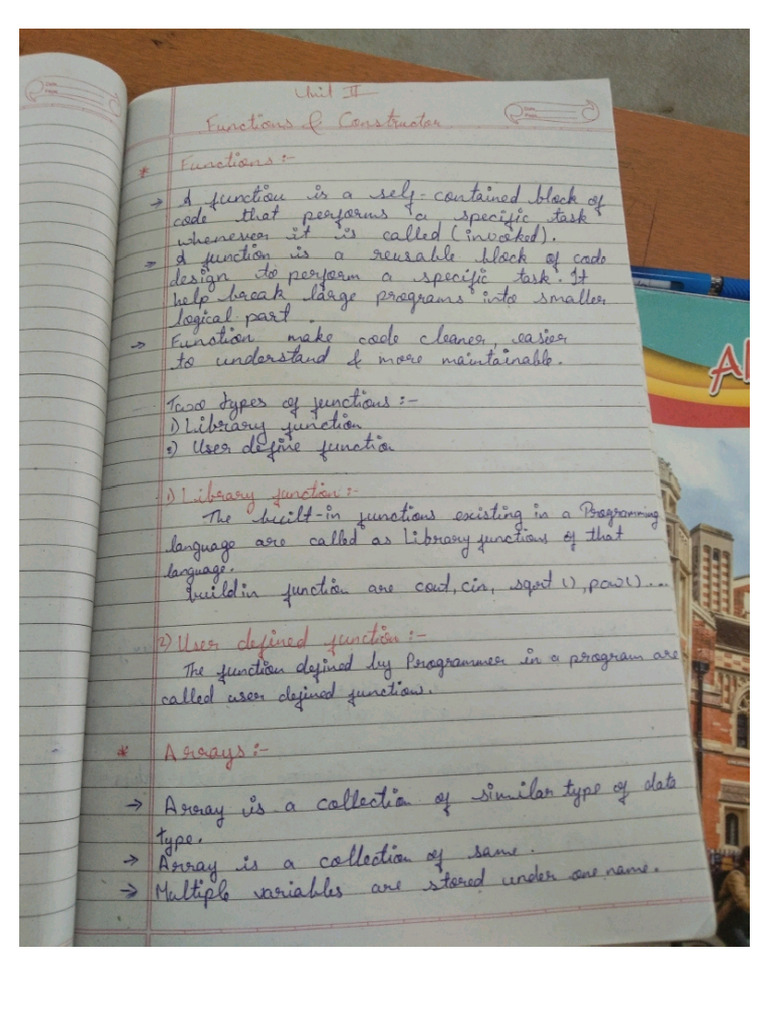 Unit II
Functions & Constructor
* Functions :-
→ A function is a self-contained block of
code that performs a specific task
whenever it is called (invoked).
→ A function is a reusable block of code
design to perform a specific task. It
help break large programs into smaller
logical part.
→ Function make code cleaner, easier
to understand & more maintainable.
Two types of functions :-
1) Library function
2) User define function
1) Library function :-
The built-in functions existing in a Programming
language are called as Library functions of that
language.
buildin function are cout, cin, sqrt(), pow()....
2) User defined function :-
The function defined by Programmer in a program are
called user defined function.
* Arrays :-
→ Array is a collection of similar type of data
type.
→ Array is a collection of same.
→ Multiple variables are stored under one name.